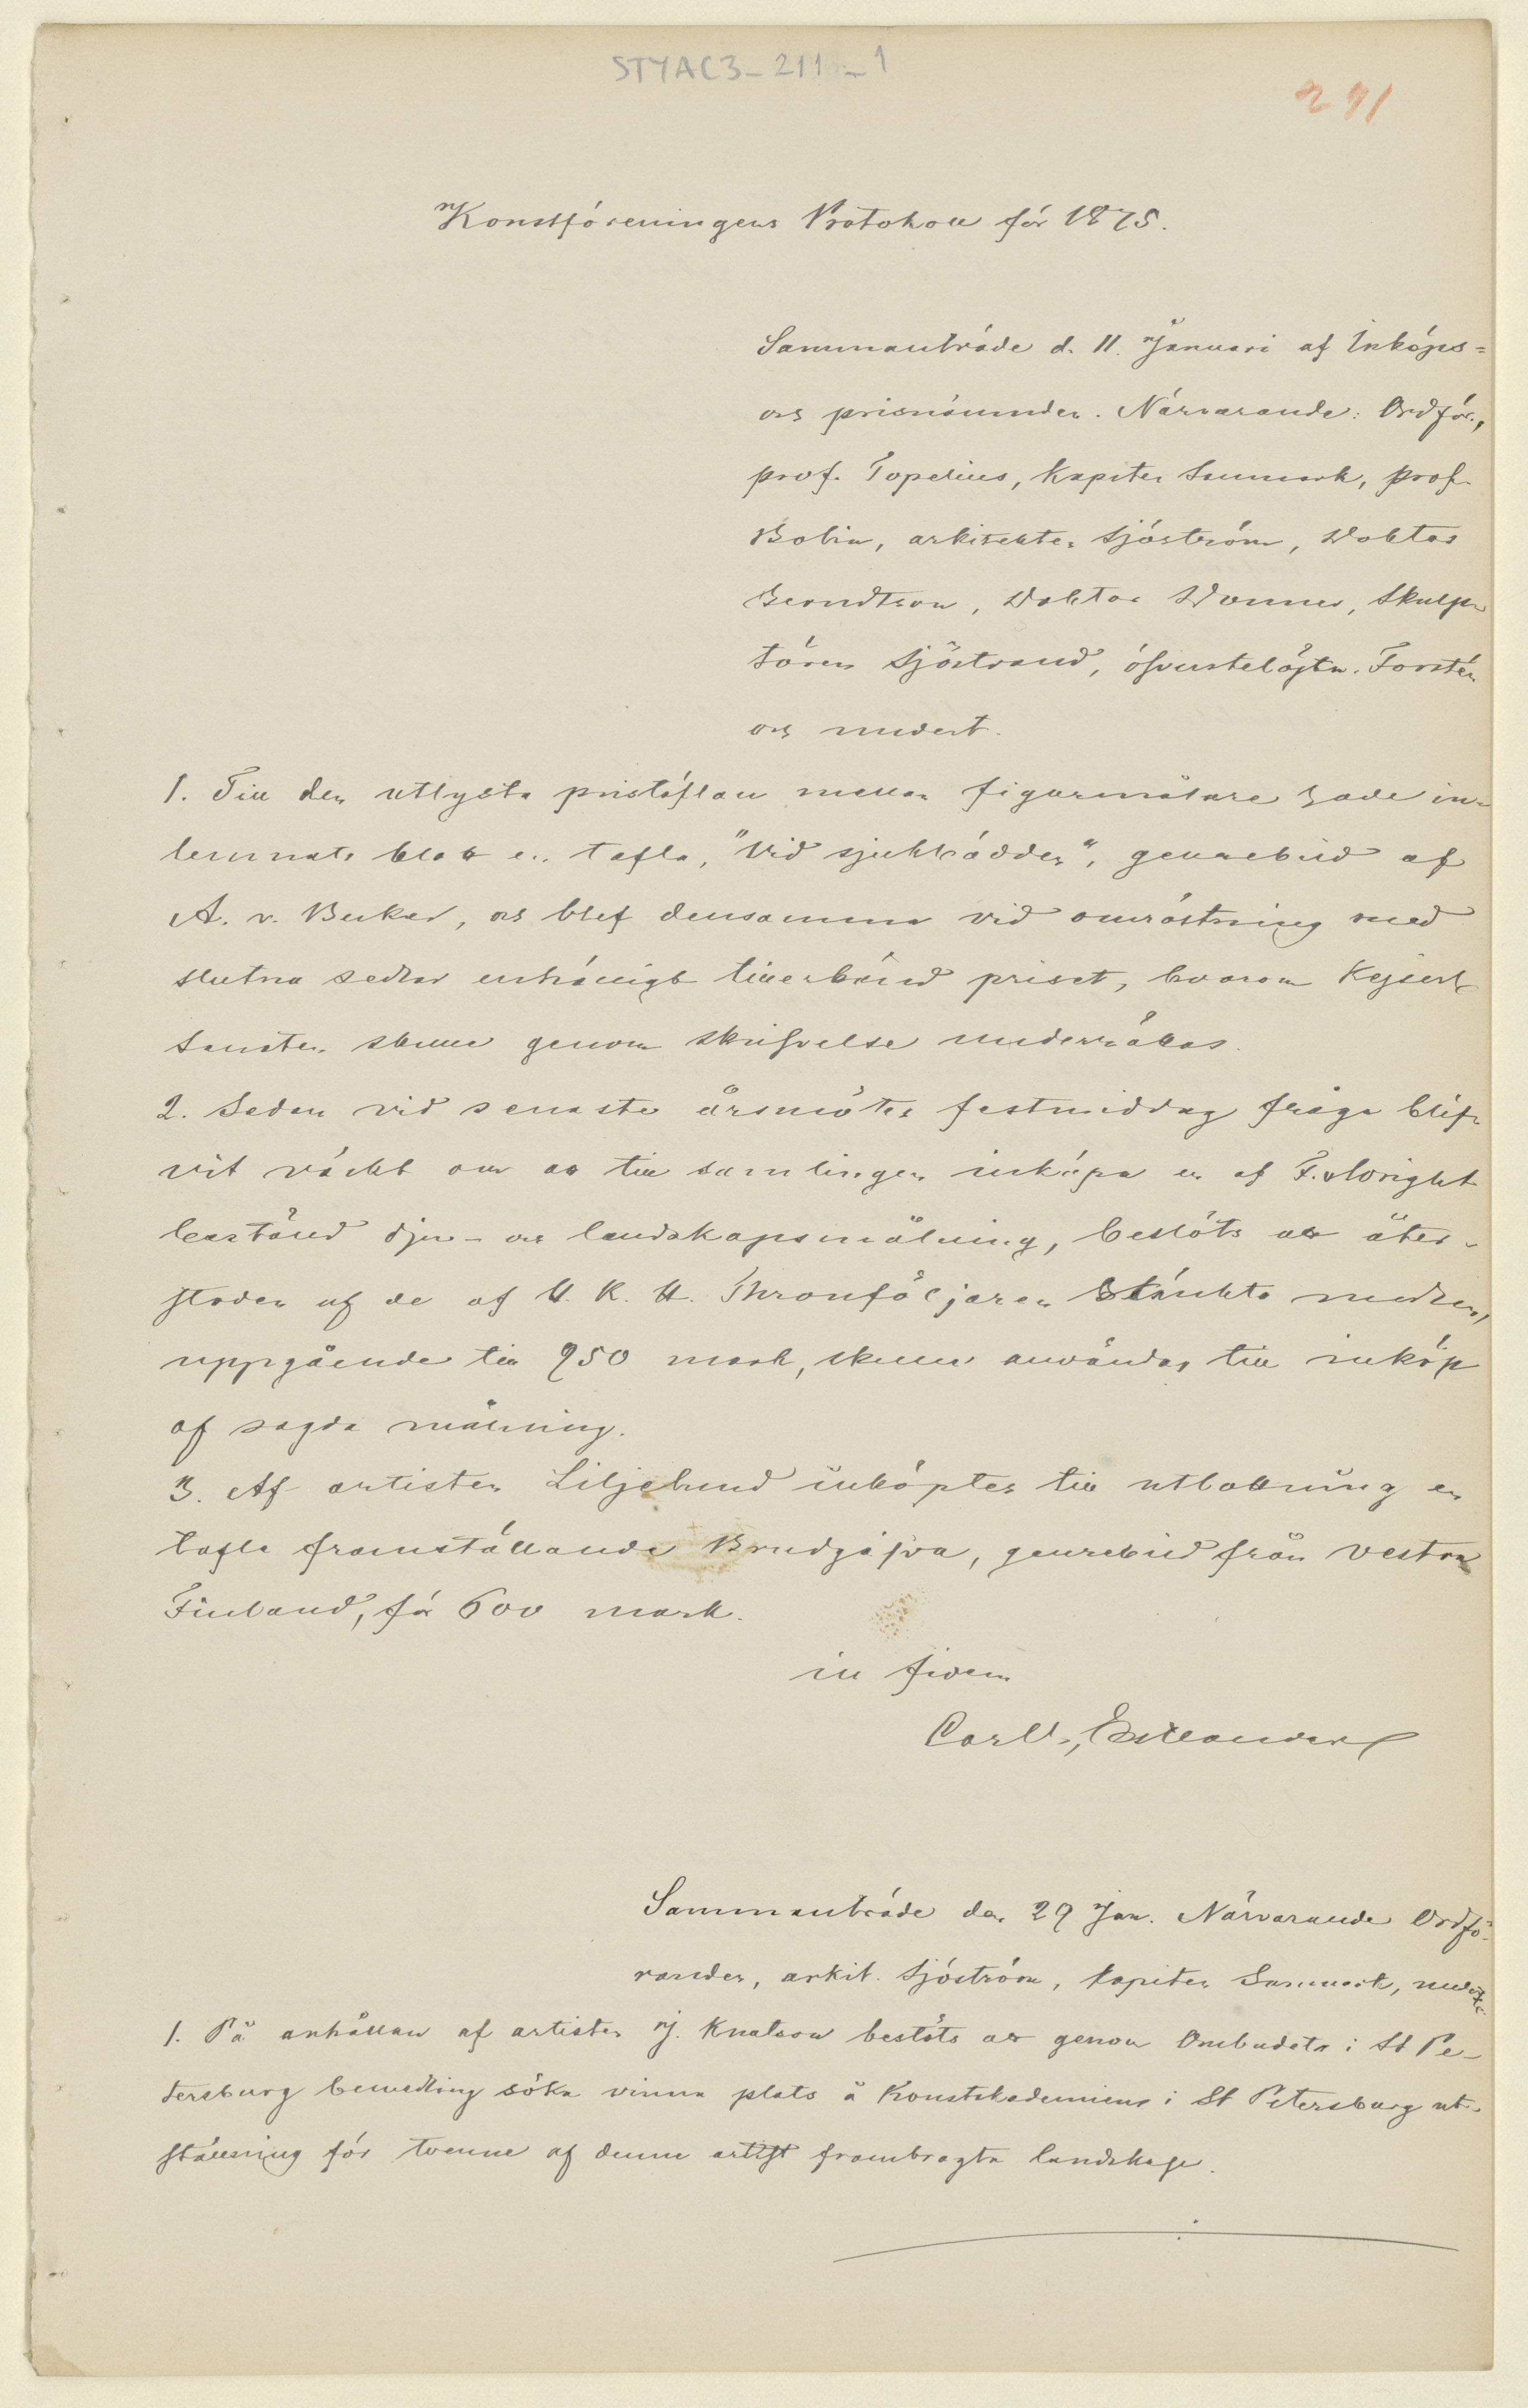 STYAC3-211-1
291
Konstföreningens Protokoll för 1875.
Sammanträde d. 11. Januari af Inköps=
och prisnämnden. Närvarande: Ordför.,
prof. Topelius, kapiten Sunmark, prof.
Bolin, arkitekten Sjöström, Doktor
Berndtson, Doktor Donner, Skulp-
tören Sjöstrand, öfverstelöjtn. Forstén
och undert.
1. Till den utlysta pristäflan mellan figurmålare hade in-
lemnats blott en tafla, "Vid sjukbädden", genrebild af
A. v. Becker, och blef densamma vid omröstning med
slutna sedlar enhälligt tillerkänd priset, hvarom Kejserl.
Senaten skulle genom skrifvelse underrättas.
2. Sedan vid senaste årsmötes festmiddag fråga blif-
vit väckt om att till samlingen inköpa en af F. v Wright
bestånd djur- och landskapsmålning, beslöts att åter-
stoden af de af H. K. H. Thronföljaren skänkta medlen,
uppgående till 950 mark, skulle användas till inköp
af sagda målning.
3. Af artisten Liljelund inköptes till utlottning en
tafla framställande Brudgåfva, genrebild från vestra
Finland, för 600 mark.
in fidem
Carl G. Estlander
Sammanträde den 29 Jan. Närvarande Ordfö-
randen, arkit. Sjöström, kapiten Sunmark, undert.
1. På anhållan af artisten J. Knutson beslöts att genom Ombudets i St Pe-
tersburg bemedling söka vinna plats å Konstakademiens i St Petersburg ut-
ställning för tvenne af denne artist frambragta landskap.